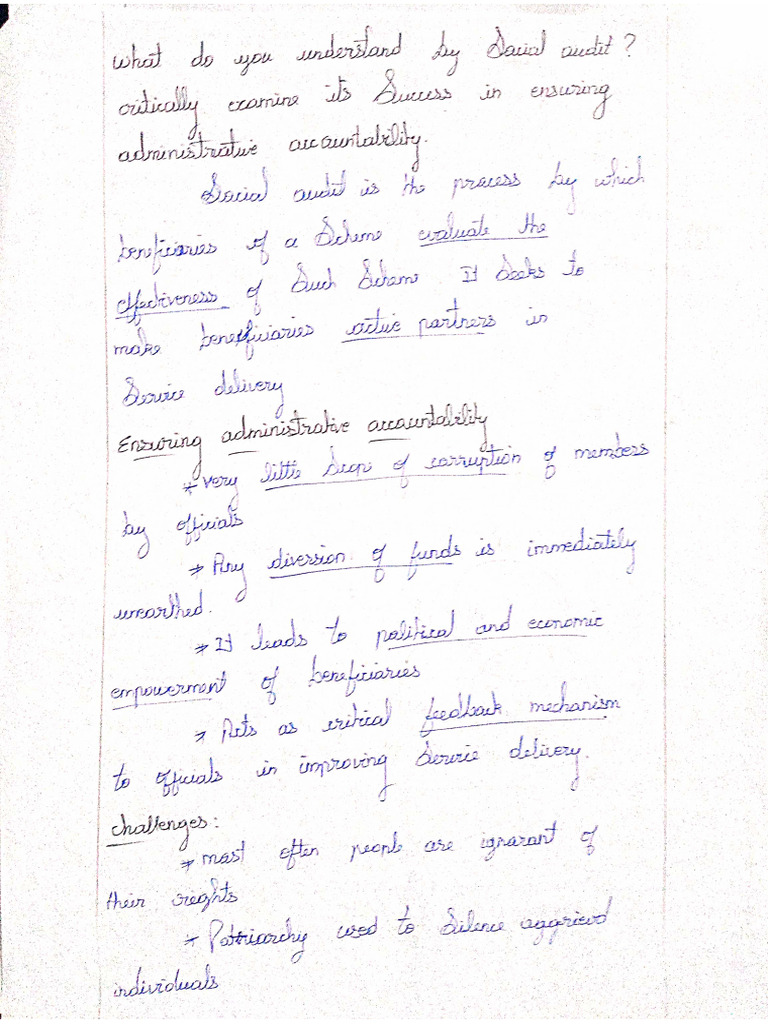 What do you understand by Social audit?
critically examine its Success in ensuring
administrative accountability.
Social audit is the process by which
beneficiaries of a Scheme evaluate the
effectiveness of Such Scheme. It Seeks to
make beneficiaries active partners in
Service delivery
Ensuring administrative accountability
* very little Scope of corruption of members
by officials
* Any diversion of funds is immediately
unearthed.
* It leads to political and economic
empowerment of beneficiaries
* Acts as critical feedback mechanism
to officials in improving Service delivery.
challenges:
* most often people are ignorant of
their rights
* Patriarchy used to Silence aggrieved
individuals